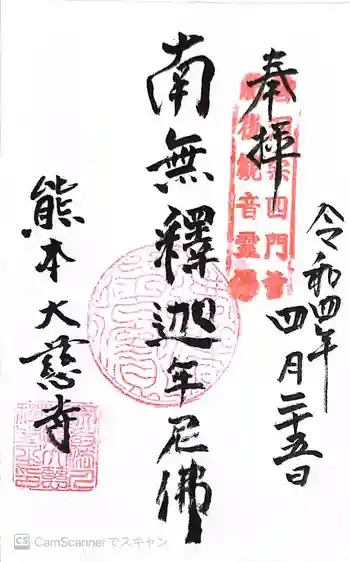 奉拝
令和四年
四月二十五日
南無釋迦牟尼佛
熊本大慈寺
CS CamScannerでスキャン